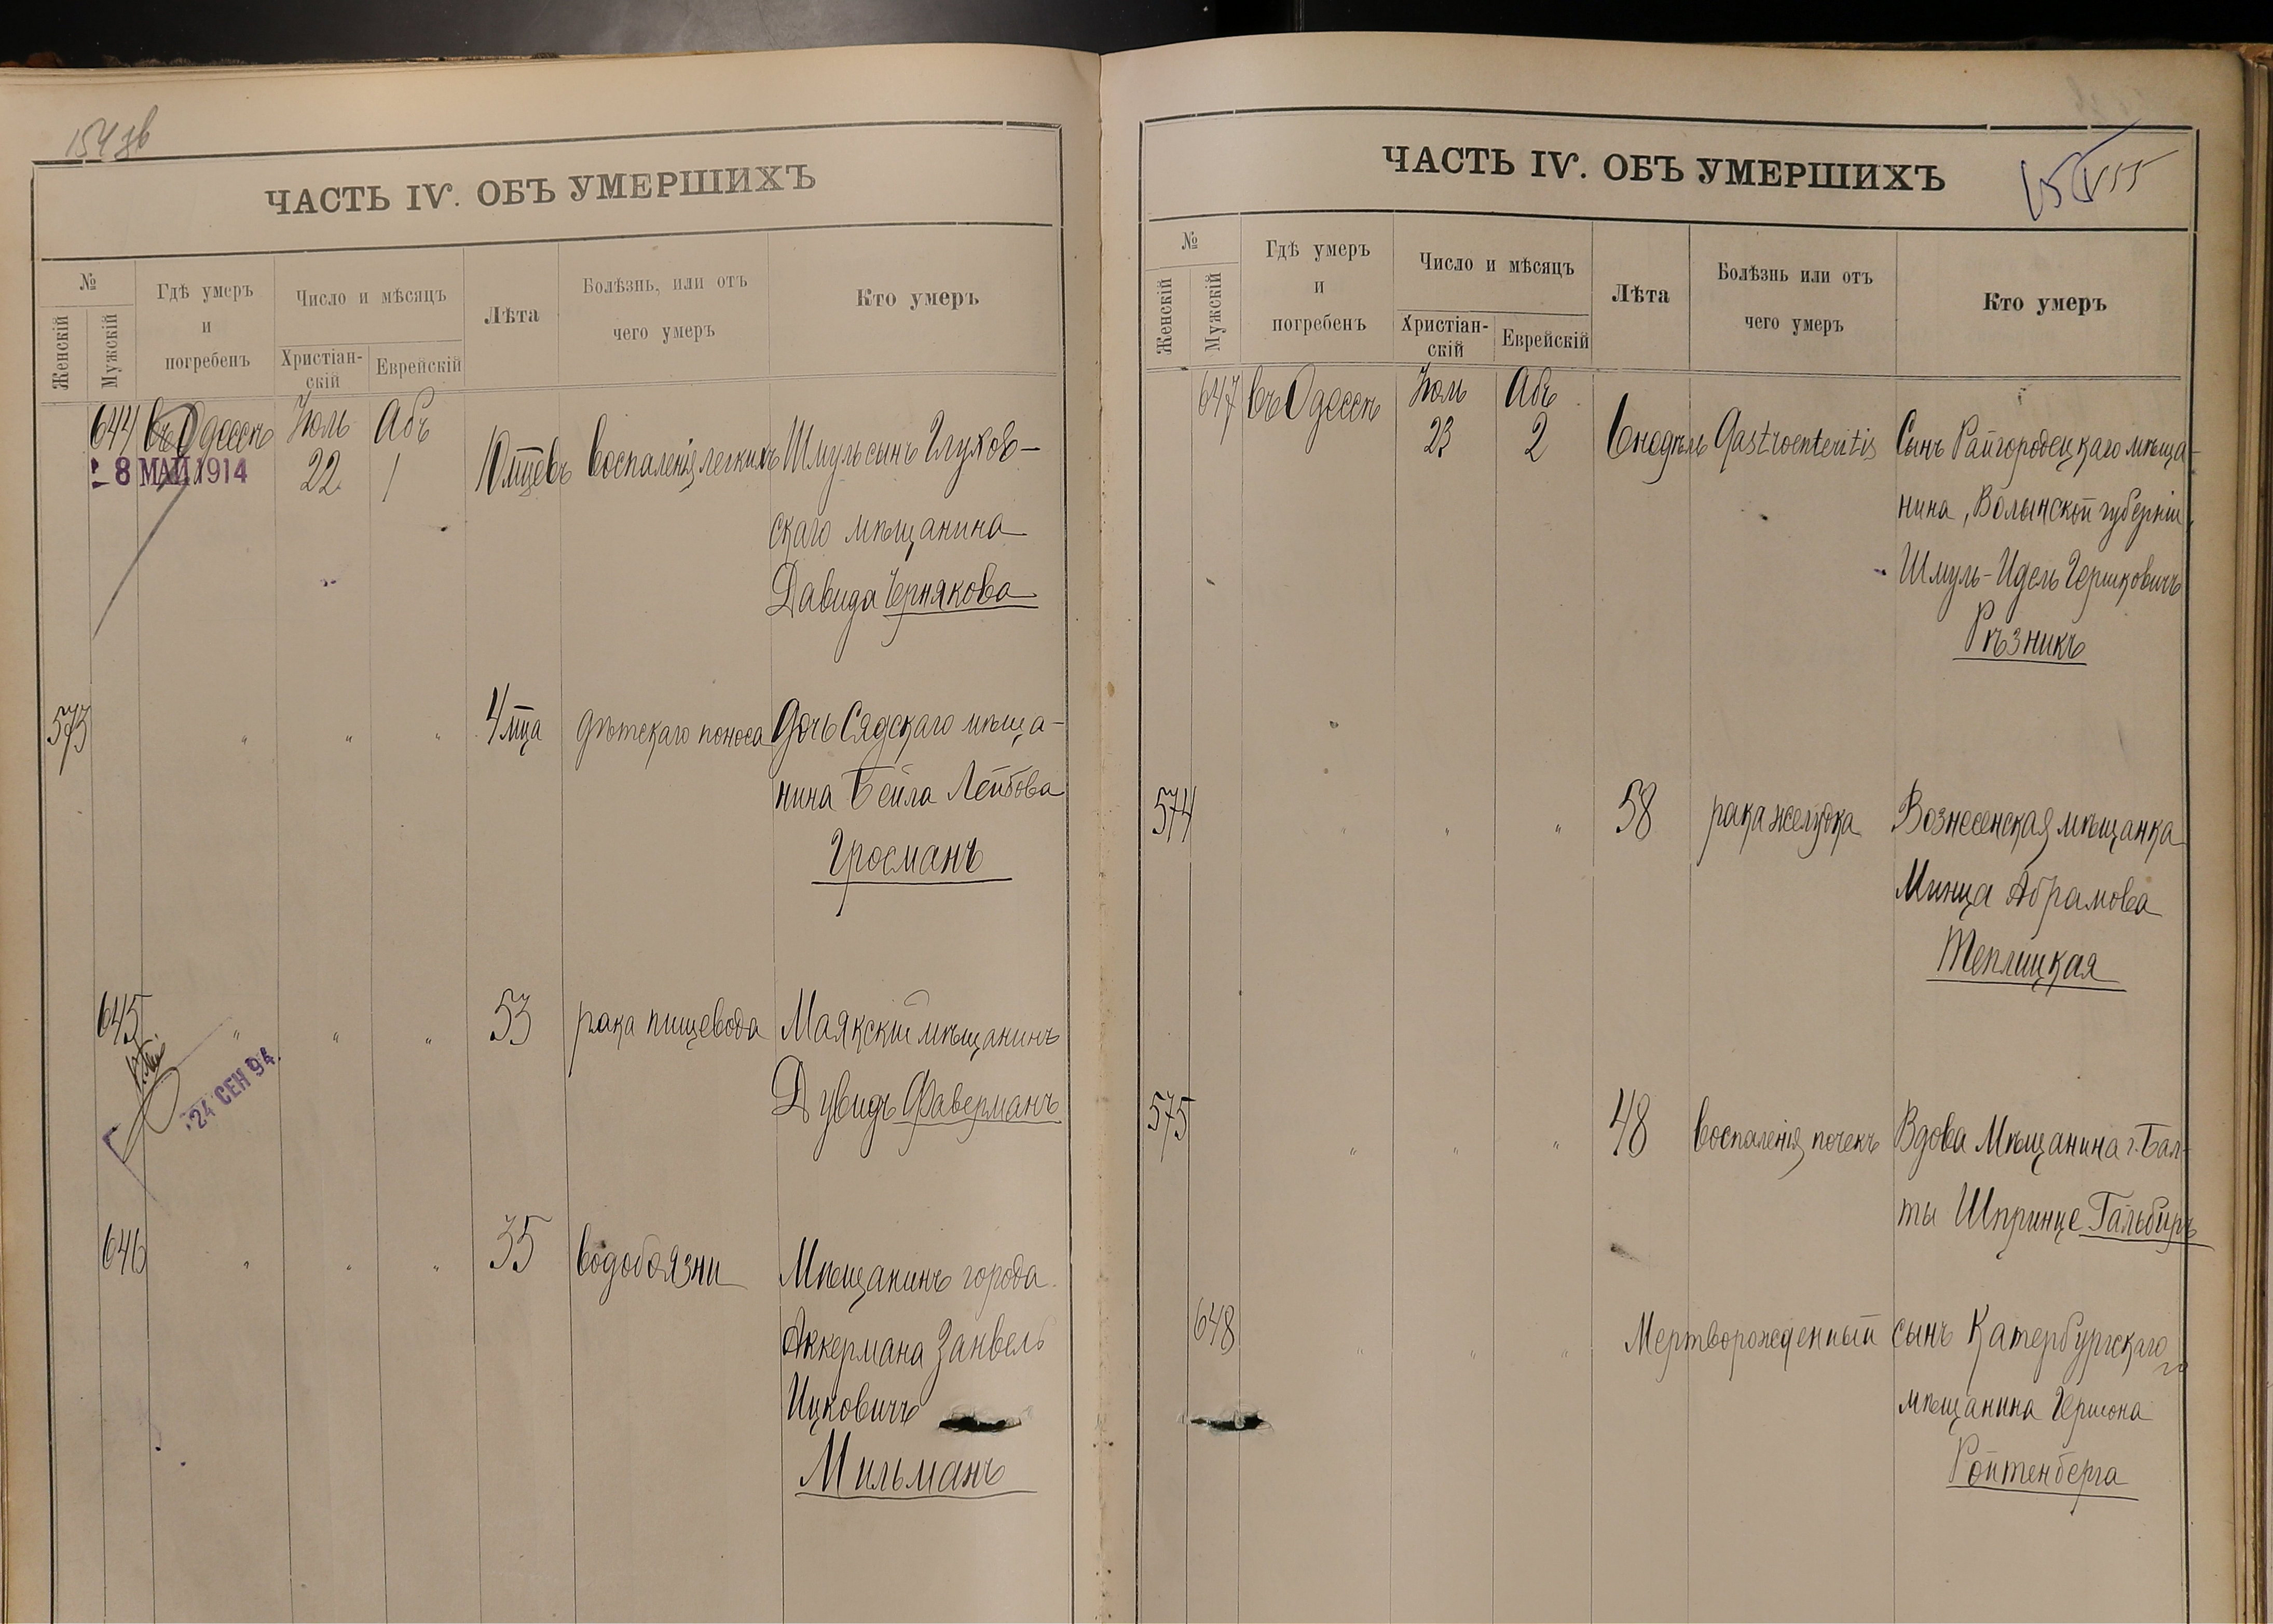 154 зв
ЧАСТЬ IV. ОБЪ УМЕРШИХЪ
№
Женскій
Мужскій
Гдѣ умеръ
и
погребенъ
Число и мѣсяцъ
Христіан-
скій
Еврейскій
Лѣта
Болѣзнь, или отъ
чего умеръ
Кто умеръ
644 въ Одессѣ Іюль Абъ
8 МАЙ 1914 22 1 10 мцевъ воспаленія легкихъ Шмуль сынъ Глухов-
скаго мѣщанина
Давида Чернякова
573 " " " 4 мца дѣтскаго поноса Дочь Сядскаго мѣща-
нина Бейла Лейбова
Гросманъ
645 " " " 53 рака пищевода Маякскій мѣщанинъ
24 СЕН 94.
Дувидъ Фаверманъ
646 " " " 35 водобоязни Мѣщанинъ города
Аккермана Занвель
Ицковичъ
Мильманъ
ЧАСТЬ IV. ОБЪ УМЕРШИХЪ
155
№
Женскій
Мужскій
Гдѣ умеръ
и
погребенъ
Число и мѣсяцъ
Христіан-
скій
Еврейскій
Лѣта
Болѣзнь или отъ
чего умеръ
Кто умеръ
647 въ Одессѣ Іюль Абъ
23 2 6 недѣль Gastroenteritis Сынъ Райгородецкаго мѣща-
нина, Волынской губерніи,
Шмуль-Идель Гершковичъ
Рѣзникъ
574 " " " 58 рака желудка Вознесенская мѣщанка
Минца Абрамова
Теплицкая
575 " " " 48 воспаленія почекъ Вдова Мѣщанина г. Бал-
ты Шпринце Гальбиръ
648 " " " Мертворожденный сынъ Катербургскаго
мѣщанина Гершона
Ройтенберга